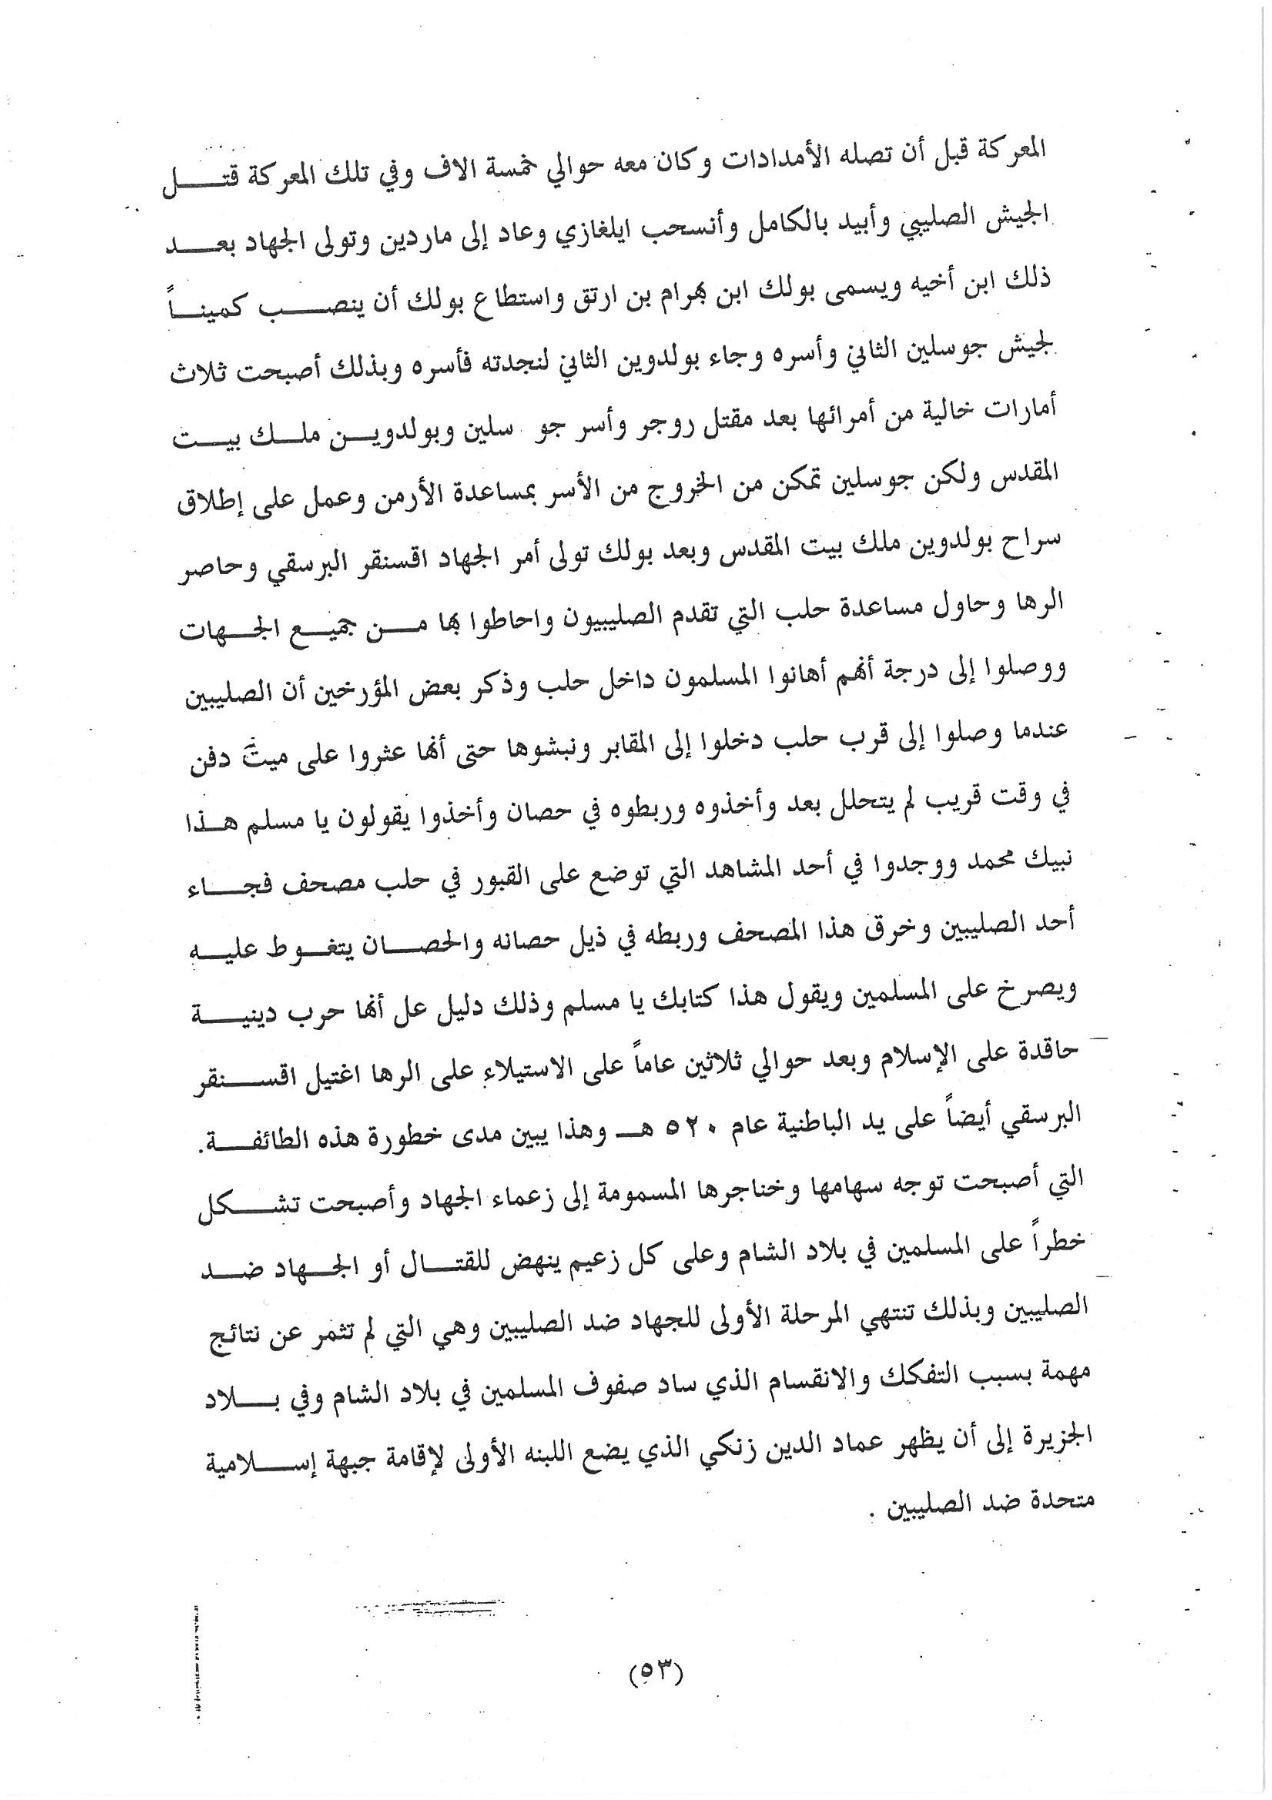 المعركة قبل أن تصله الأمدادات وكان معه حوالي خمسة الاف وفي تلك المعركة قتل
الجيش الصليبي وأبيد بالكامل وأنسحب ايلغازي وعاد إلى ماردين وتولى الجهاد بعد
ذلك ابن أخيه ويسمى بولك ابن بهرام بن ارتق واستطاع بولك أن ينصب كميناً
لجيش جوسلين الثاني وأسره وجاء بولدوين الثاني لنجدته فأسره وبذلك أصبحت ثلاث
أمارات خالية من أمرائها بعد مقتل روجر وأسر جو سلين وبولدوين ملك بيت
المقدس ولكن جوسلين تمكن من الخروج من الأسر بمساعدة الأرمن وعمل على إطلاق
سراح بولدوين ملك بيت المقدس وبعد بولك تولى أمر الجهاد اقسنقر البرسقي وحاصر
الرها وحاول مساعدة حلب التي تقدم الصليبيون واحاطوا بها من جميع الجهات
ووصلوا إلى درجة أنهم أهانوا المسلمون داخل حلب وذكر بعض المؤرخين أن الصليبين
عندما وصلوا إلى قرب حلب دخلوا إلى المقابر ونبشوها حتى أنها عثروا على ميت دفن
في وقت قريب لم يتحلل بعد وأخذوه وربطوه في حصان وأخذوا يقولون يا مسلم هذا
نبيك محمد ووجدوا في أحد المشاهد التي توضع على القبور في حلب مصحف فجاء
أحد الصليبين وخرق هذا المصحف وربطه في ذيل حصانه والحصان يتغوط عليه
ويصرخ على المسلمين ويقول هذا كتابك يا مسلم وذلك دليل عل أنها حرب دينية
حاقدة على الإسلام وبعد حوالي ثلاثين عاماً على الاستيلاء على الرها اغتيل اقسنقر
البرسقي أيضاً على يد الباطنية عام ٥٢٠ هـ وهذا يبين مدى خطورة هذه الطائفة.
التي أصبحت توجه سهامها وخناجرها المسمومة إلى زعماء الجهاد وأصبحت تشكل
خطراً على المسلمين في بلاد الشام وعلى كل زعيم ينهض للقتال أو الجهاد ضد
الصليبين وبذلك تنتهي المرحلة الأولى للجهاد ضد الصليبين وهي التي لم تثمر عن نتائج
مهمة بسبب التفكك والانقسام الذي ساد صفوف المسلمين في بلاد الشام وفي بلاد
الجزيرة إلى أن يظهر عماد الدين زنكي الذي يضع اللبنه الأولى لإقامة جبهة إسلامية
متحدة ضد الصليبين .
(٥٣)